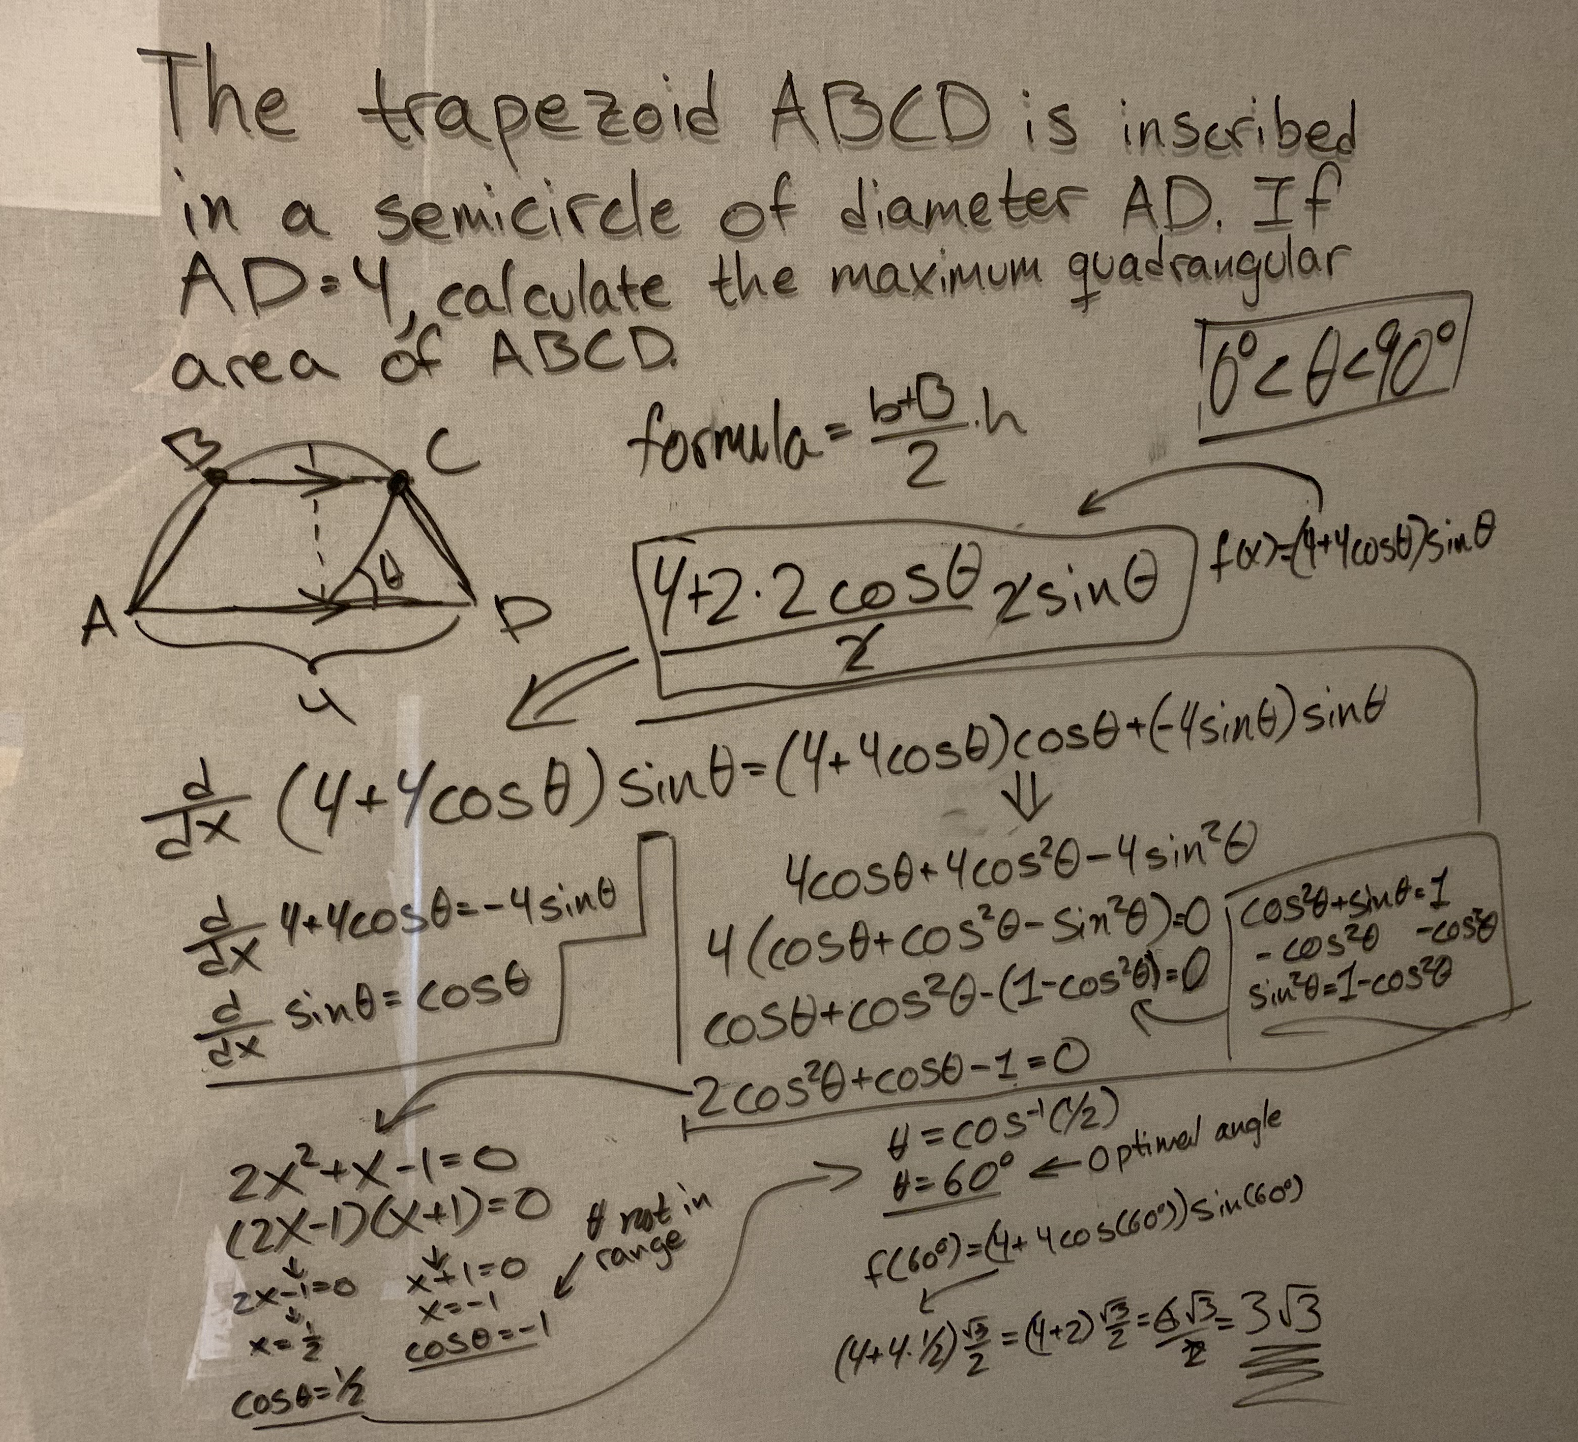 The trapezoid ABCD is inscribed
in a semicircle of diameter AD. If
AD=4, calculate the maximum quadrangular
area of ABCD.
0°<θ<90°
formula = (b+B)/2 · h
B C
θ
A D
4
(4+2·2cosθ)/2 2sinθ
f(x)=(4+4cosθ)sinθ
d/dx (4+4cosθ)sinθ=(4+4cosθ)cosθ+(-4sinθ)sinθ
⇓
4cosθ+4cos²θ-4sin²θ
d/dx 4+4cosθ=-4sinθ
4(cosθ+cos²θ-sin²θ)=0
d/dx sinθ=cosθ
cosθ+cos²θ-(1-cos²θ)=0
cos²θ+sinθ=1
-cos²θ -cos²θ
sin²θ=1-cos²θ
2cos²θ+cosθ-1=0
2x²+x-1=0
(2x-1)(x+1)=0
2x-1=0 x+1=0
x=1/2 x=-1
cosθ=1/2 cosθ=-1
θ not in
range
θ=cos⁻¹(1/2)
θ=60° ← Optimal angle
f(60°)=(4+4cos(60°))sin(60°)
(4+4·1/2)√3/2=(4+2)√3/2=6√3/2=3√3